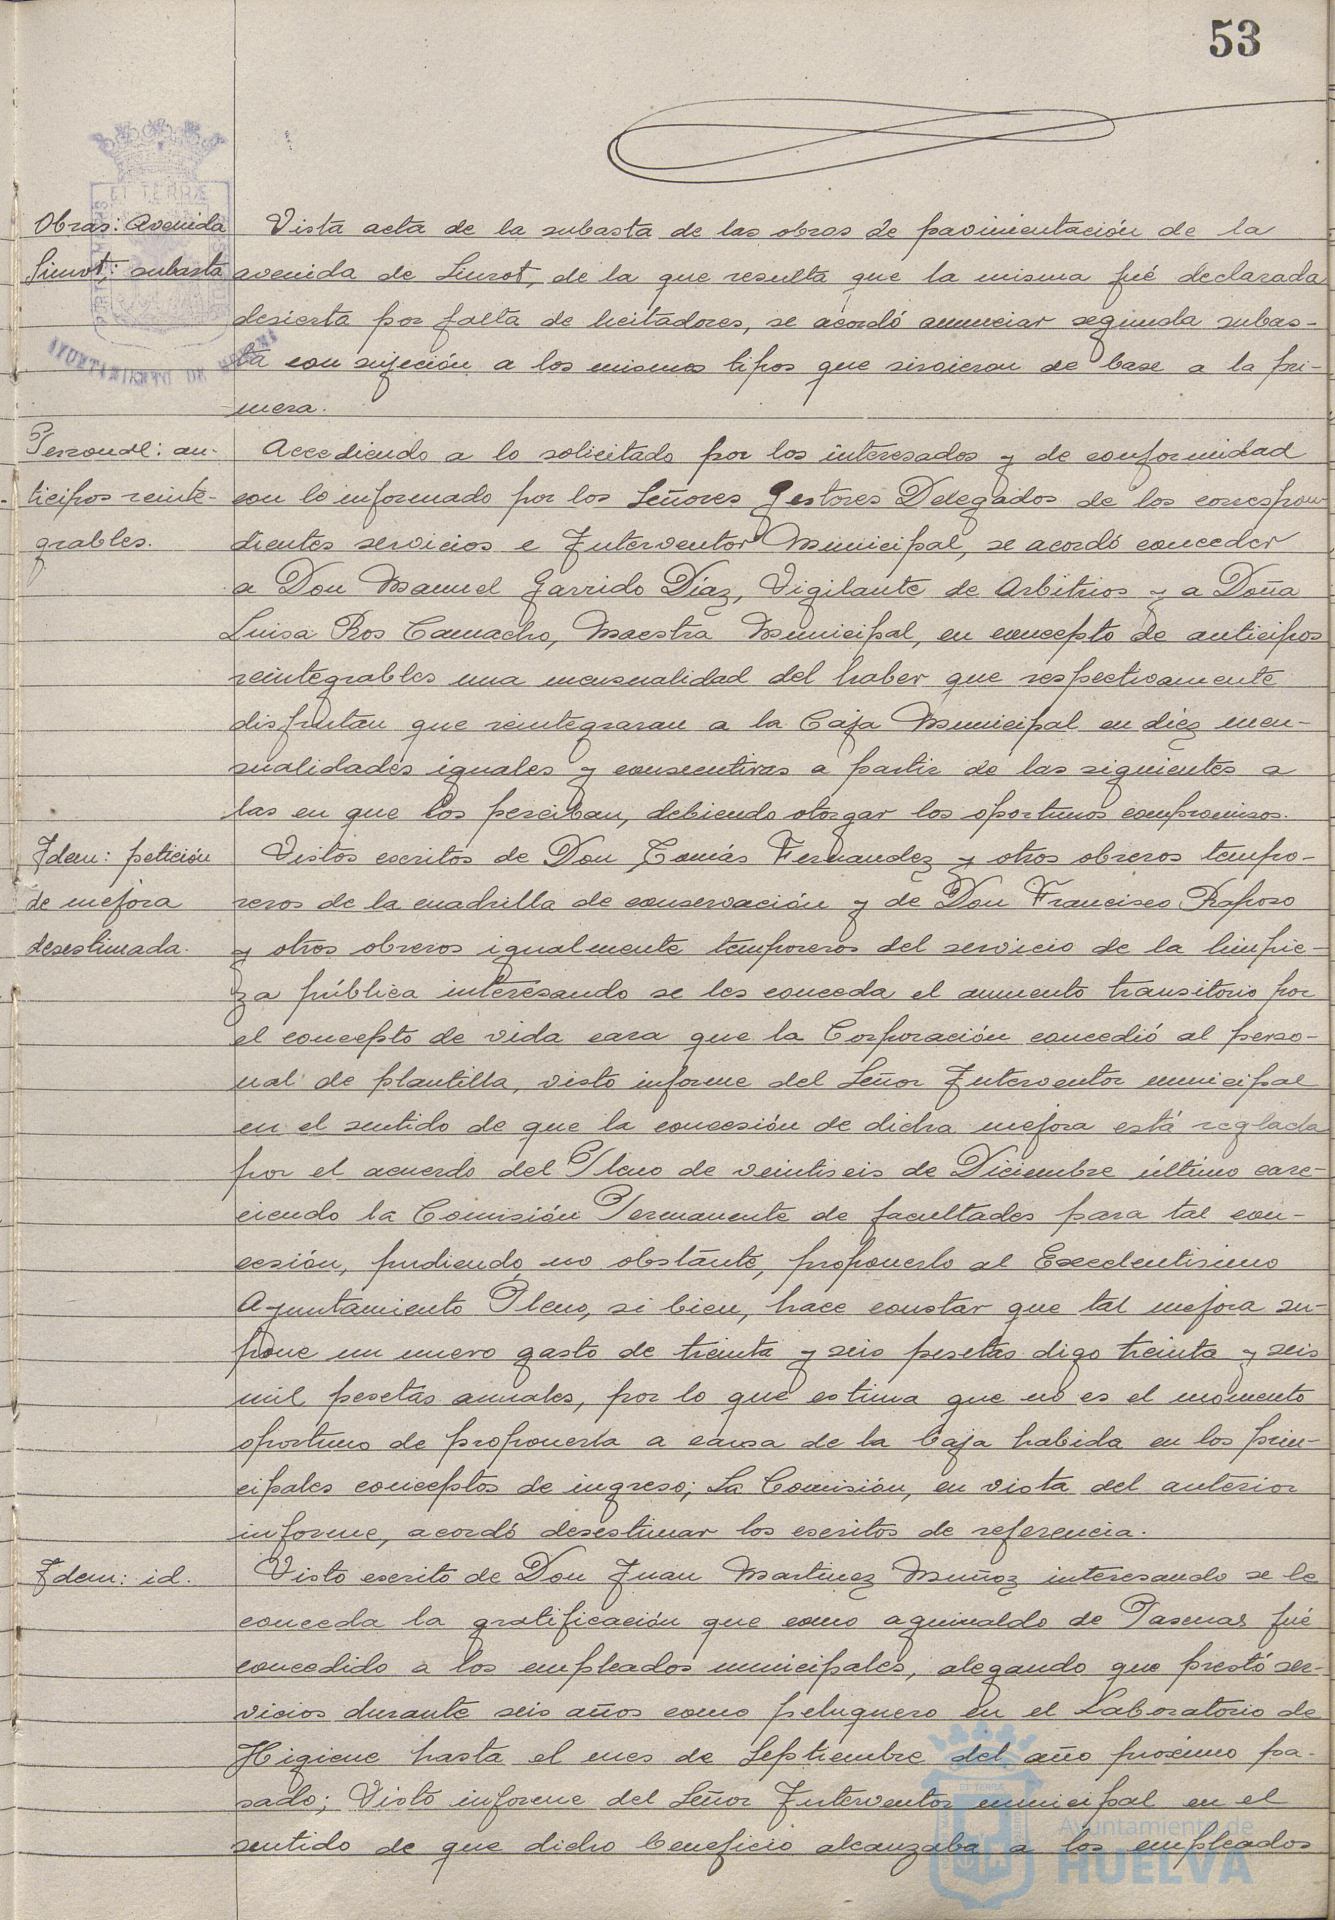 53
Obras: Avenida
Simrot: subasta
Vista acta de la subasta de las obras de pavimentación de la
avenida de Simrot, de la que resulta que la misma fué declarada
desierta por falta de licitadores, se acordó anunciar segunda subas-
ta con sujeción a los mismos tipos que sirvieron de base a la pri-
mera.
Personal: an-
ticipos reinte-
grables.
Accediendo a lo solicitado por los interesados y de conformidad
con lo informado por los Señores Gestores Delegados de los correspon-
dientes servicios e Interventor Municipal, se acordó conceder
a Don Manuel Garrido Díaz, Vigilante de Arbitrios y a Doña
Luisa Ros Camacho, Maestra Municipal, en concepto de anticipos
reintegrables una mensualidad del haber que respectivamente
disfrutan que reintegraran a la Caja Municipal en diez men-
sualidades iguales y consecutivas a partir de las siguientes a
las en que los perciban, debiendo otorgar los oportunos compromisos.
Idem: petición
de mejora
desestimada.
Vistos escritos de Don Tomás Fernandez y otros obreros tempo-
reros de la cuadrilla de conservación y de Don Francisco Raposo
y otros obreros igualmente temporeros del servicio de la limpie-
za pública interesando se les conceda el aumento transitorio por
el concepto de vida cara que la Corporación concedió al perso-
nal de plantilla, visto informe del Señor Interventor municipal
en el sentido de que la concesión de dicha mejora está reglada
por el acuerdo del Pleno de veintiseis de Diciembre último care-
ciendo la Comisión Permanente de facultades para tal con-
cesión, pudiendo no obstante, proponerlo al Excelentisimo
Ayuntamiento Pleno, si bien, hace constar que tal mejora su-
pone un nuevo gasto de treinta y seis pesetas digo treinta y seis
mil pesetas anuales, por lo que estima que no es el momento
oportuno de proponerla a causa de la baja habida en los prin-
cipales conceptos de ingreso; La Comisión, en vista del anterior
informe, acordó desestimar los escritos de referencia.
Idem: id.
Visto escrito de Don Juan Martinez Muñoz interesando se le
conceda la gratificación que como aguinaldo de Pascuas fué
concedido a los empleados municipales, alegando que prestó ser-
vicios durante seis años como peluquero en el Laboratorio de
Higiene hasta el mes de Septiembre del año próximo pa-
sado; Visto informe del Señor Interventor municipal en el
sentido de que dicho beneficio alcanzaba a los empleados
Ayuntamiento de
HUELVA